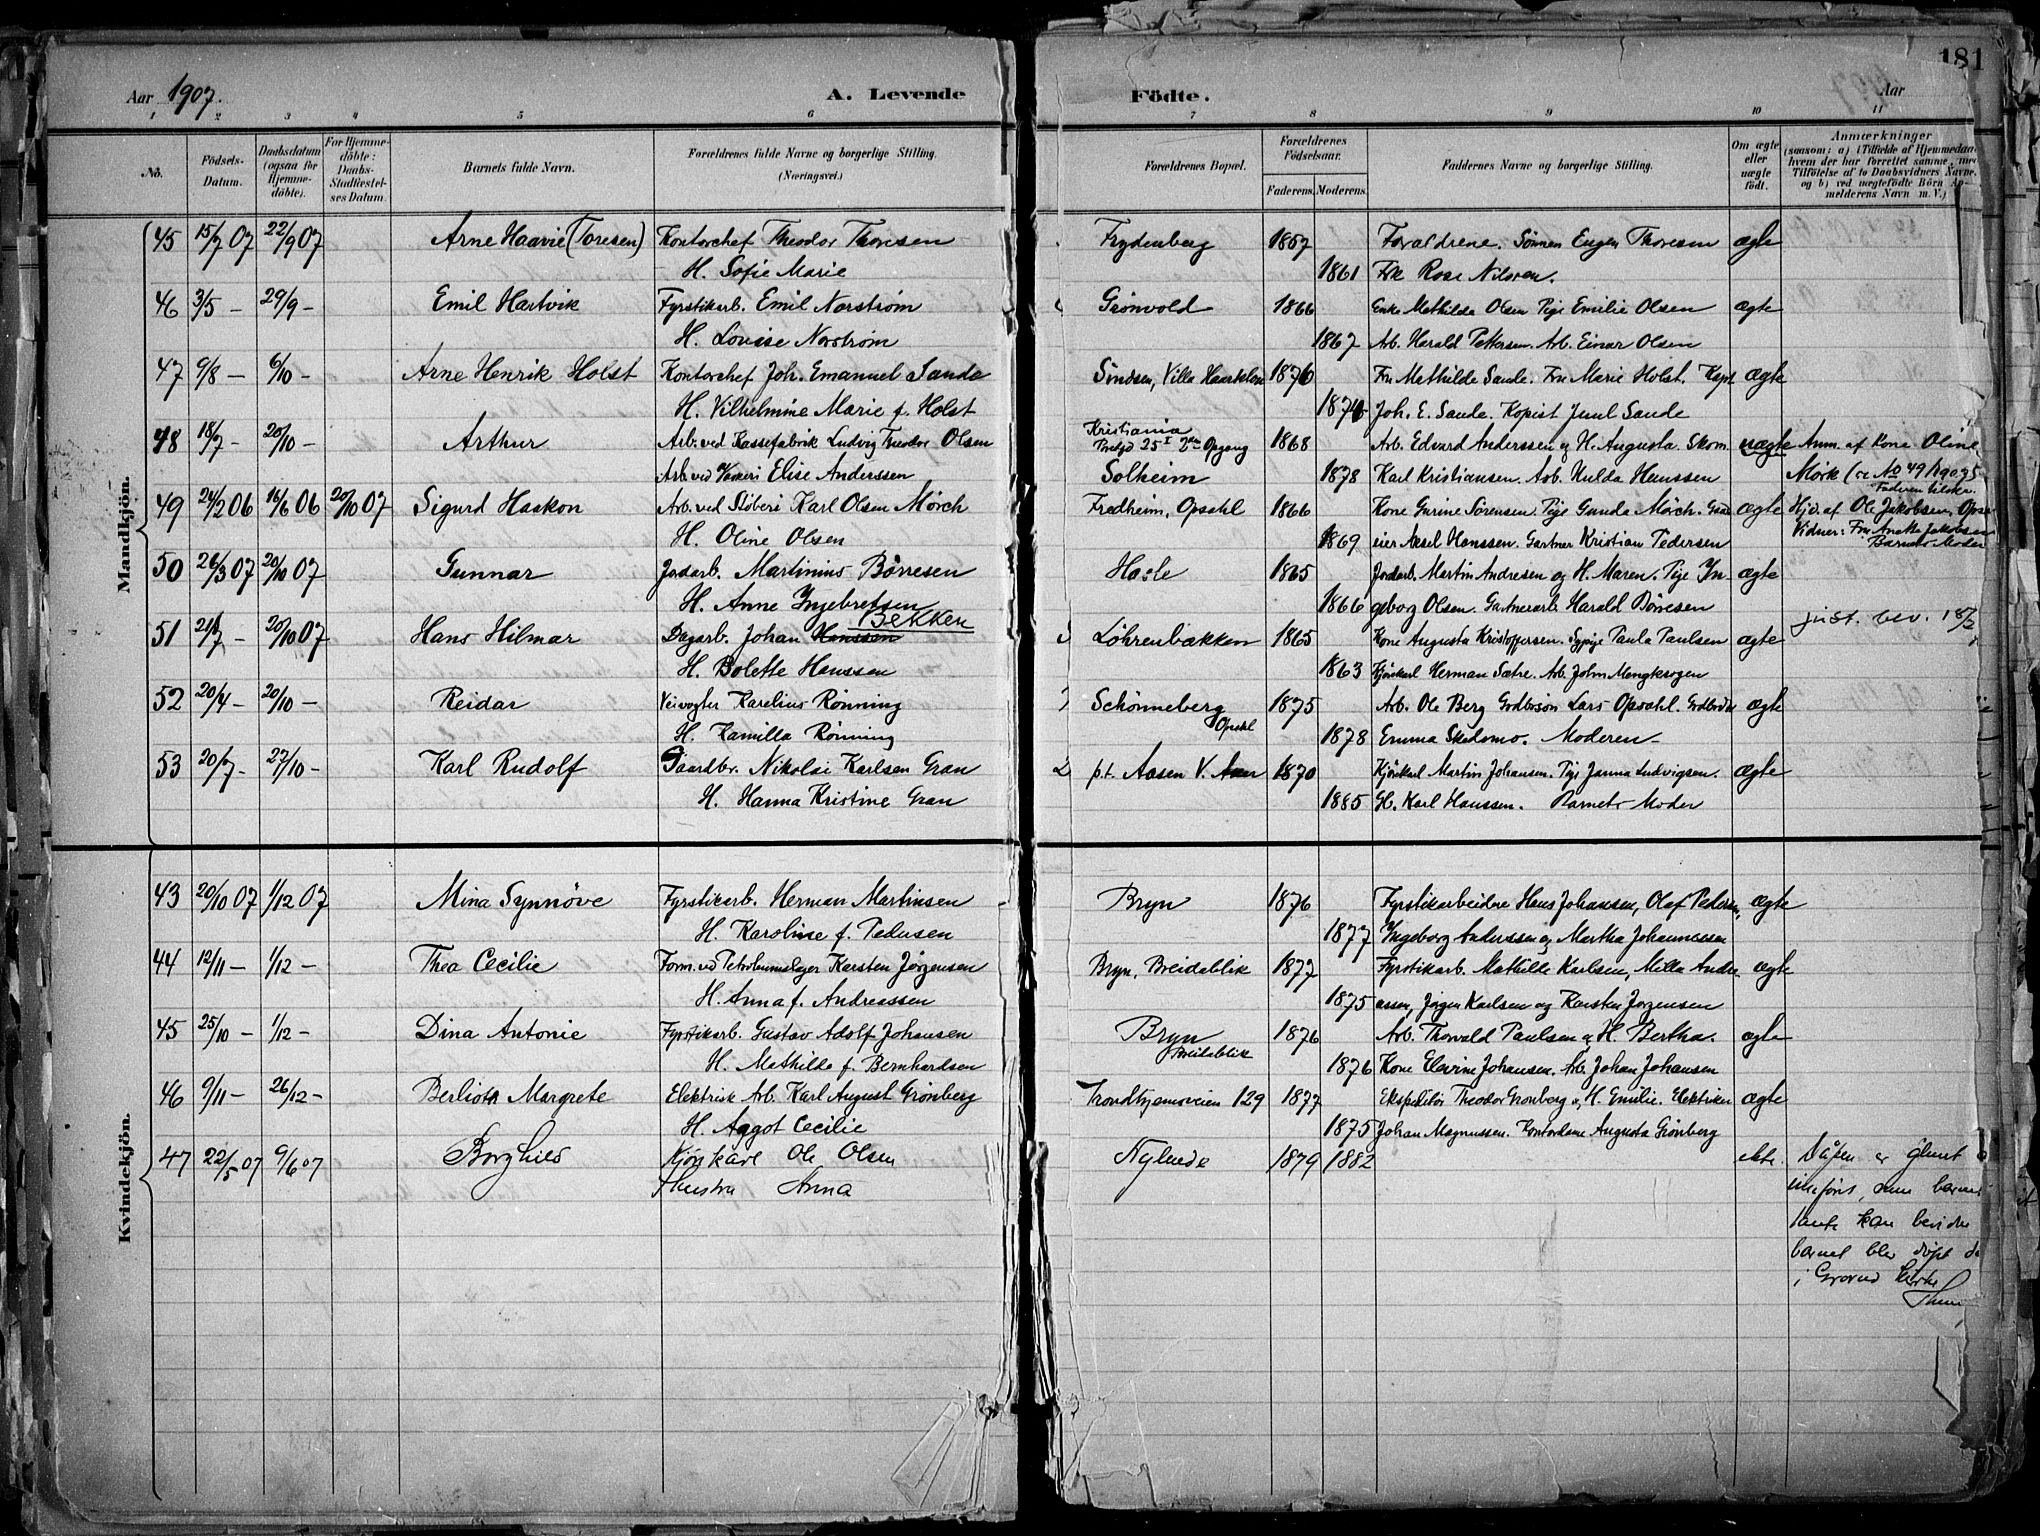 181
Aar 1907.
A. Levende
Födte.
Aar
1 2 3 4 5 6 7 8 9 10 11
No.
Födsels-
Datum.
Daabsdatum
(ogsaa for
Hjemme-
döbte).
For Hjemme-
döbte:
Daabs-
Stadfæstel-
ses Datum.
Barnets fulde Navn.
Forældrenes fulde Navne og borgerlige Stilling.
(Næringsvei.)
Forældrenes Bopæl.
Forældrenes
Fødselsaar.
Faderens.
Moderens.
Faddernes Navne og borgerlige Stilling.
Om ægte
eller
uægte
født.
Anmærkninger
(saasom: a) i Tilfælde af Hjemmedaab
hvem der har forrettet samme, med
Tilføielse af to Daabsvidners Navne,
og b) ved uægtefödte Börn An-
melderens Navn m. V.)
Mandkjön.
45 15/7 07 22/9 07 Arne Haavie (Toresen) Kontorchef Theodor Thoresen Frydenberg 1857 Forældrene. Sønnen Eugen Thoresen ægte
H. Sofie Marie 1861 Frk Rosa Nilsen.
46 3/5 - 29/9 - Emil Hartvik Fyrstikarb. Emil Norstrøm Grønvold 1866 Enke Mathilda Olsen Pige Emilie Olsen ægte
H. Lovise Norstrøm 1867 Arb. Harald Pettersen. Arb. Einar Olsen
47 9/8 - 6/10 - Arne Henrik Holst Kontorchef Joh. Emanuel Sande Sindsen, Villa 1876 Fru Mathilde Sande. Fru Marie Holst. Kapt ægte
H. Vilhelmine Marie f. Holst 1874 Joh. E. Sande. Kopist Juul Sande
48 18/7 - 20/10 - Arthur Arb. ved Kassefabrik Ludvig Theodor Olsen Kristiania 25 I 2den Opgang 1868 Arb. Edvard Anderssen og H. Augusta. Skom. uægte Anm. af Kone Oline
Arb. ved Væveri Elise Anderssen Solheim 1878 Karl Kristiansen. Arb. Hulda Hanssen Mörk
49 24/2 06 16/6 06 20/10 07 Sigurd Haakon Arb. ved Støberi Karl Olsen Mørch Fredheim, Opsahl 1866 Kone Gurine Sørensen. Pige Gunda Mörch. ægte Hjd. af Ole Jakobsen, Opsal
H. Oline Olsen 1869 eier Aksel Hanssen. Gartner Kristian Pedersen Vidner: Fru Anetta Jakobsen
Barnets Moder
50 26/3 07 20/10 07 Gunnar Jordarb. Martinius Børresen Hasle 1865 Jordarb. Martin Andresen og H. Maren. Pige In- ægte
H. Anne Ingebretsen 1866 geborg Olsen. Gartnerarb. Harald Børresen
Bekken
51 20/10 07 Hans Hilmar Dagarb. Johan Hanssen Løhrenbakken 1865 Kone Augusta Kristoffersen. Sypige Paula Paulsen ægte just. bev. 18/2
H. Bolette Hanssen 1863 Kjørekarl Herman Sætre. Arb. John
52 20/4 - 20/10 - Reidar Veivogter Karelius Rønning Schönneberg 1875 Arb. Ole Berg Lars Opsahl. ægte
Opsahl
H. Kamilla Rønning 1878 Emma Skedsmo. Moderen -
53 20/7 - 27/10 - Karl Rudolf Gaardbr. Nikolai Karlsen Gran p.t. Aasen V. Aker 1870 Kjörekarl Martin Johansen. Pige Janna Ludvigsen. ægte
H. Hanna Kristine Gran 1885 Karl Hanssen. Barnets Moder
Kvindekjön.
43 20/10 07 1/12 07 Mina Synnöve Fyrstikarb. Herman Martinsen Bryn 1876 Fyrstikarbeidere Hans Johansen, Olaf Pedersen, ægte
H. Karoline f. Pedersen 1877 Ingeborg Anderssen og Martha Johannessen
44 12/11 - 1/12 - Thea Cecilie Form. ved Petroleumslager Karsten Jørgensen Bryn, Breidablik 1877 Fyrstikarb. Mathilde Karlsen, Milla Andre- ægte
H. Anna f. Andreassen 1875 assen, Jørgen Karlsen og Karsten Jørgensen
45 25/10 - 1/12 - Dina Antonie Fyrstikarb. Gustav Adolf Johansen Bryn 1876 Arb. Thorvald Paulsen og H. Bertha. ægte
Breidablik
H. Mathilde f. Bernhardsen 1876 Kone Elevine Johansen. Arb. Johan Johansen
46 9/11 - 26/12 - Berliot Margrete Elektrisk Arb. Karl August Grønberg Trondhjemsveien 129 1877 Ekspeditör Theodor Grønberg og H. Emilie. Elektriker ægte
H. Aagot Cecilie 1875 Johan Magnussen. Kontordame Augusta Grønberg
47 22/5 07 9/6 07 Borghild Kjørekarl Ole Olsen 1879 1882 ekte. Dåpen er glemt
Hustru Anna innført, men barnets
tante kan bevidne
barnet blev døpt
i Grorud Kirke